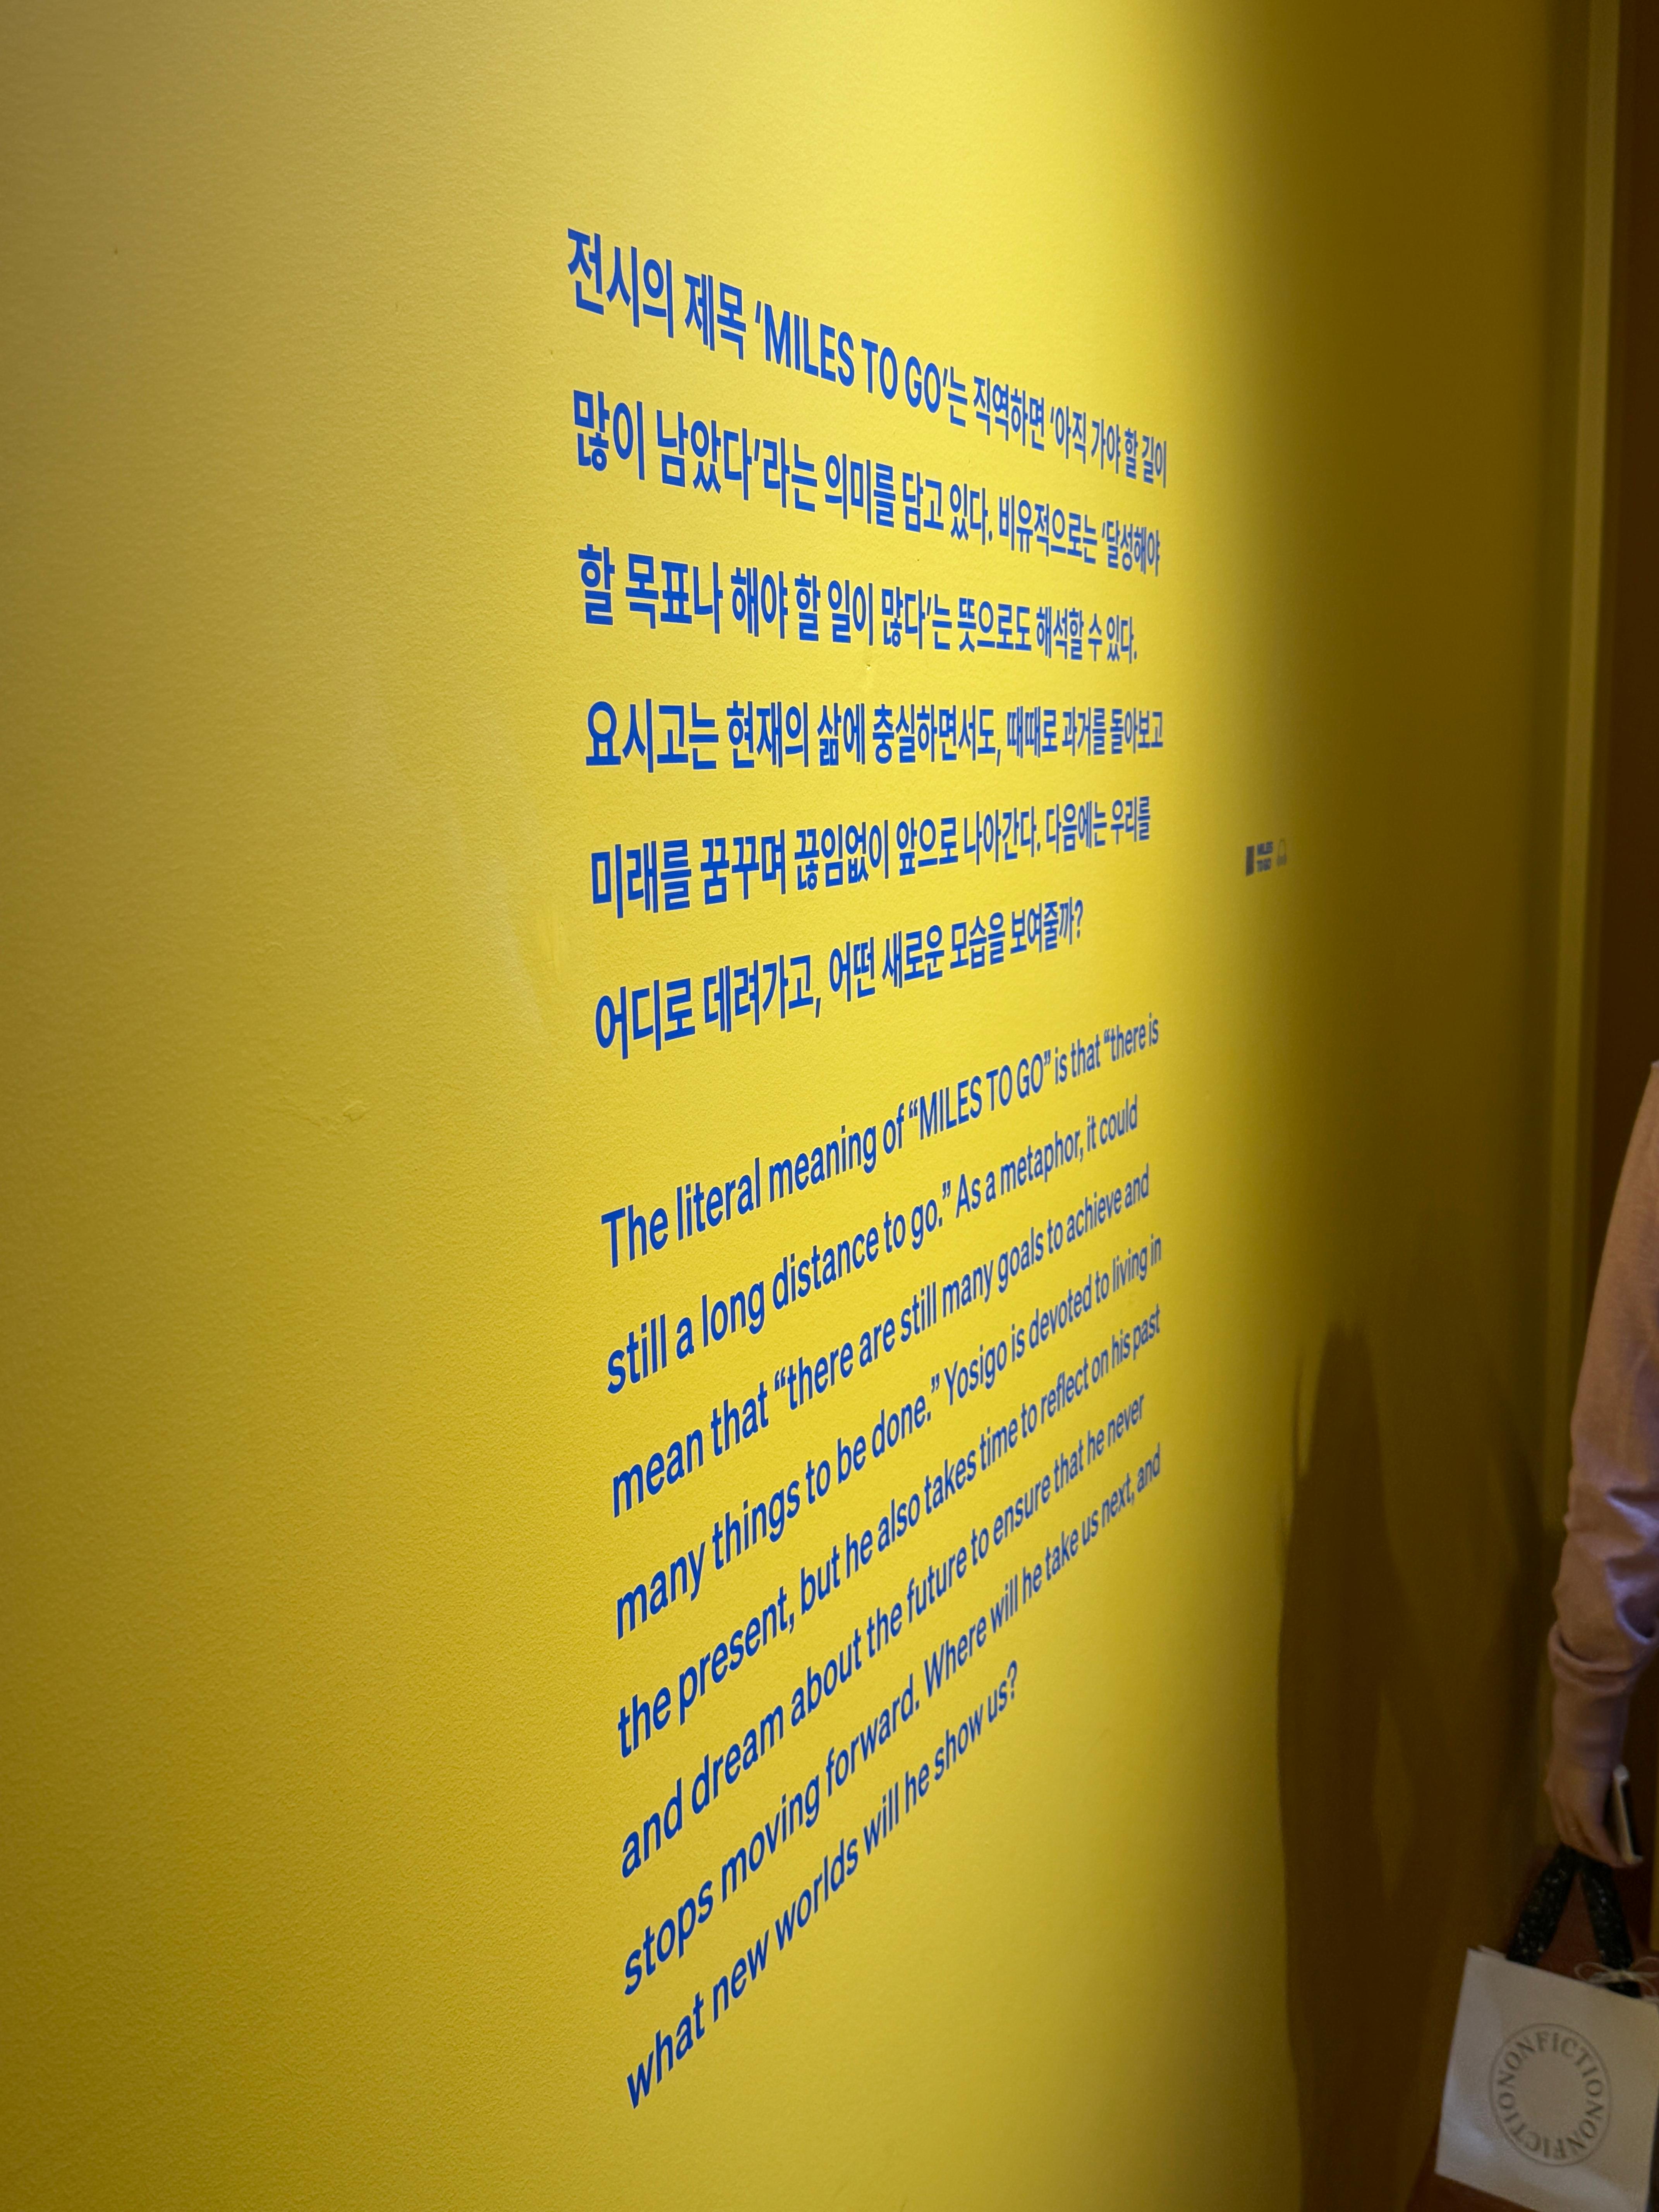 전시의 제목 ‘MILES TO GO’는 직역하면 ‘아직 가야 할 길이
많이 남았다’라는 의미를 담고 있다. 비유적으로는 ‘달성해야
할 목표나 해야 할 일이 많다’는 뜻으로도 해석할 수 있다.
요시고는 현재의 삶에 충실하면서도, 때때로 과거를 돌아보고
미래를 꿈꾸며 끊임없이 앞으로 나아간다. 다음에는 우리를
어디로 데려가고, 어떤 새로운 모습을 보여줄까?
The literal meaning of “MILES TO GO” is that “there is
still a long distance to go.” As a metaphor, it could
mean that “there are still many goals to achieve and
many things to be done.” Yosigo is devoted to living in
the present, but he also takes time to reflect on his past
and dream about the future to ensure that he never
stops moving forward. Where will he take us next, and
what new worlds will he show us?
MILES
TO GO
NONFICTIONONFICTIONONFICTIO